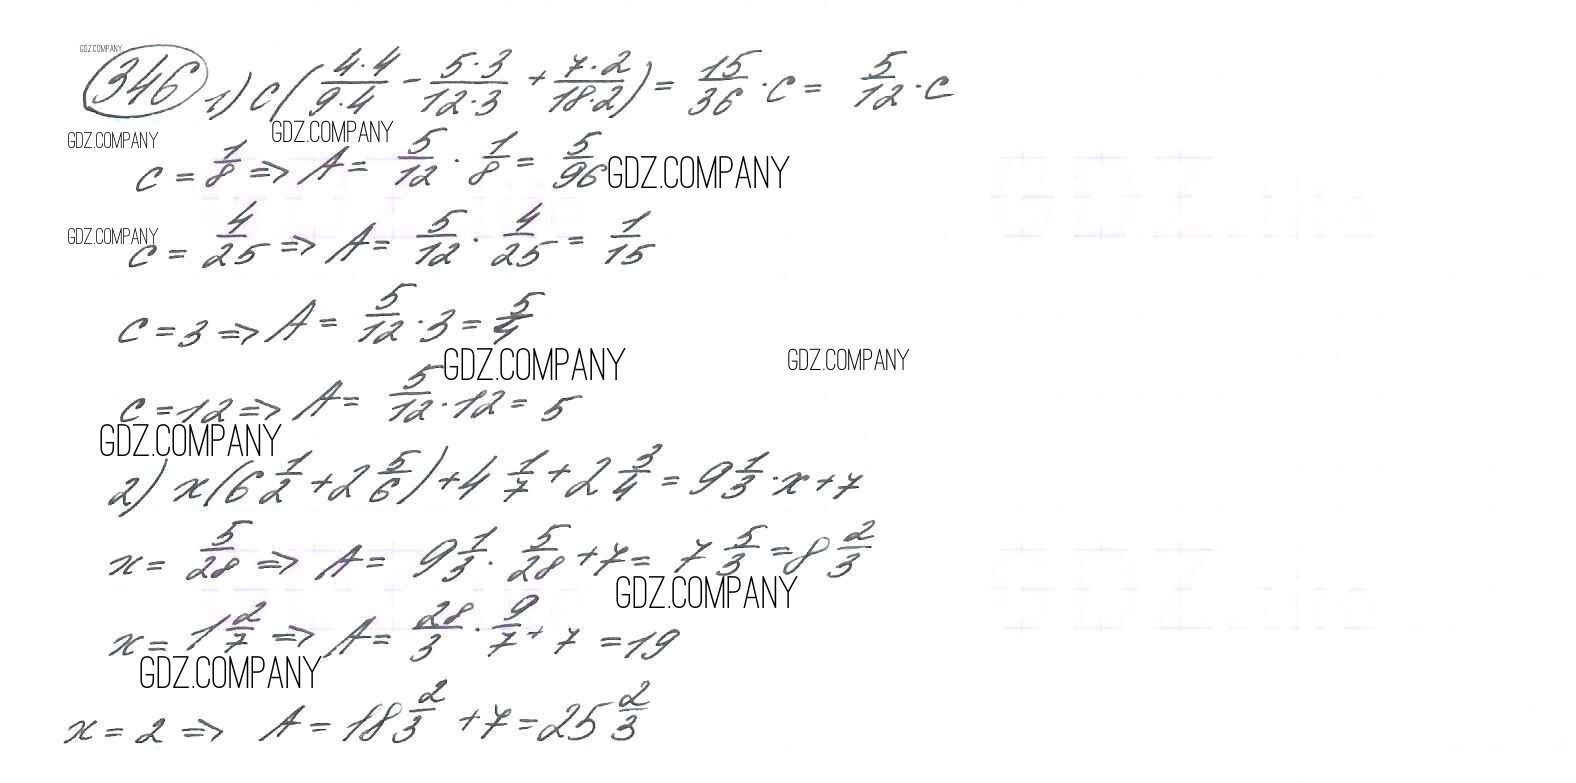 GDZ.COMPANY
346 1) c(4·4/9·4 - 5·3/12·3 + 7·2/18·2) = 15/36 · c = 5/12 · c
GDZ.COMPANY GDZ.COMPANY
c = 1/8 => A = 5/12 · 1/8 = 5/96 GDZ.COMPANY
GDZ.COMPANY
c = 4/25 => A = 5/12 · 4/25 = 1/15
c = 3 => A = 5/12 · 3 = 5/4
GDZ.COMPANY GDZ.COMPANY
c = 12 => A = 5/12 · 12 = 5
GDZ.COMPANY
2) x(6 1/2 + 2 5/6) + 4 1/7 + 2 3/4 = 9 1/3 · x + 7
x = 5/28 => A = 9 1/3 · 5/28 + 7 = 7 5/3 = 8 2/3
GDZ.COMPANY
x = 1 2/7 => A = 28/3 · 9/7 + 7 = 19
GDZ.COMPANY
x = 2 => A = 18 2/3 + 7 = 25 2/3